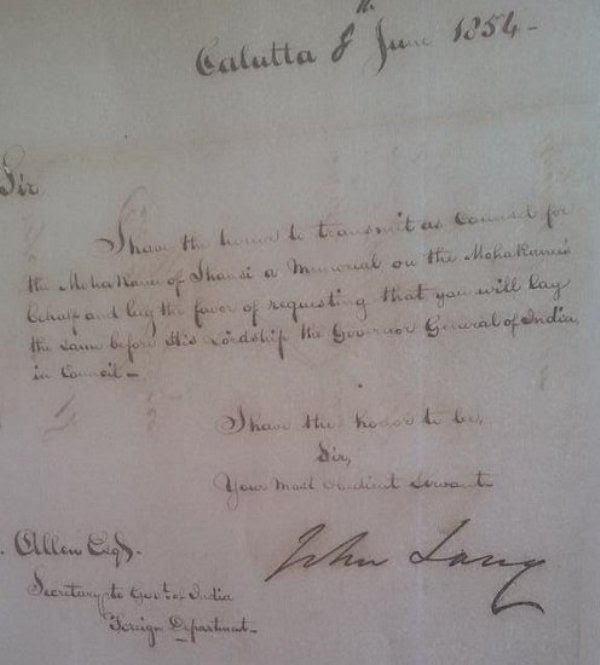 Calutta 8th June 1854-
Sir
I have the honor to transmit as Counsel for
the MohaRanee of Jhansi a Memorial on the MohaRanee's
behalf and beg the favor of requesting that you will lay
the same before His Lordship the Governor General of India,
in Council-
I have the honor to be,
Sir,
Your most obedient Servant
John Lang
. Allen Esqr.
Secretary to Govt. of India
Foreign Department-